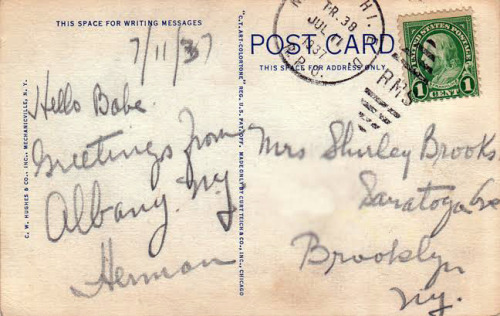 THIS SPACE FOR WRITING MESSAGES
7/11/37
Hello Babe.
Greetings from
Albany. Ny
Herman
C. W. HUGHES & CO., INC., MECHANICVILLE, N. Y.
"C.T. ART-COLORTONE" REG. U.S. PAT. OFF. MADE ONLY BY CURT TEICH & CO., INC., CHICAGO
POST CARD
THIS SPACE FOR ADDRESS ONLY
TR. 38
JUL
1937
R.P.O.
RMS
UNITED STATES POSTAGE
1 CENT 1
Mrs Shirley Brooks
Saratoga Ave
Brooklyn
Ny.